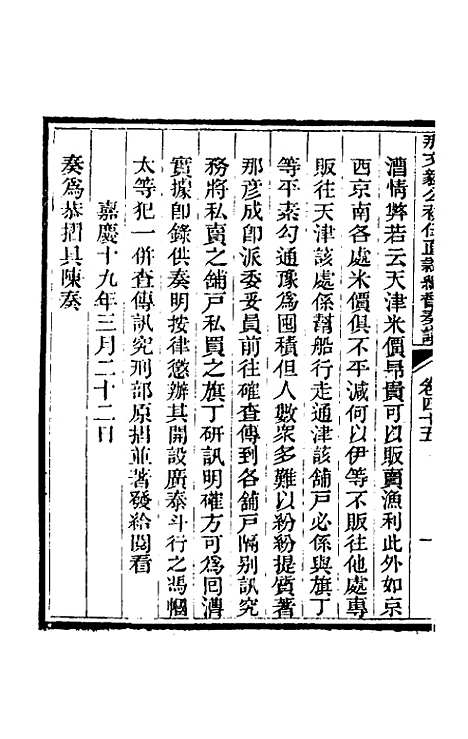 那文毅公初任直隸總督奏議 卷四十五 一
漕情弊若云天津米價昂貴可以販賣漁利此外如京
西京南各處米價俱不平減何以伊等不販往他處專
販往天津該處係幫船行走通津該舖戶必係與旗丁
等平素勾通豫為囤積但人數眾多難以紛紛提質著
那彥成卽派委妥員前往確查傳到各舖戶隔别訊究
務將私賣之舖戶私買之旗丁研訊明確方可為囘漕
實據卽錄供奏明按律懲辦其開設廣泰斗行之馮幗
太等犯一併查傳訊究刑部原摺並著發給閱看
嘉慶十九年三月二十二日
奏為恭摺具陳奏